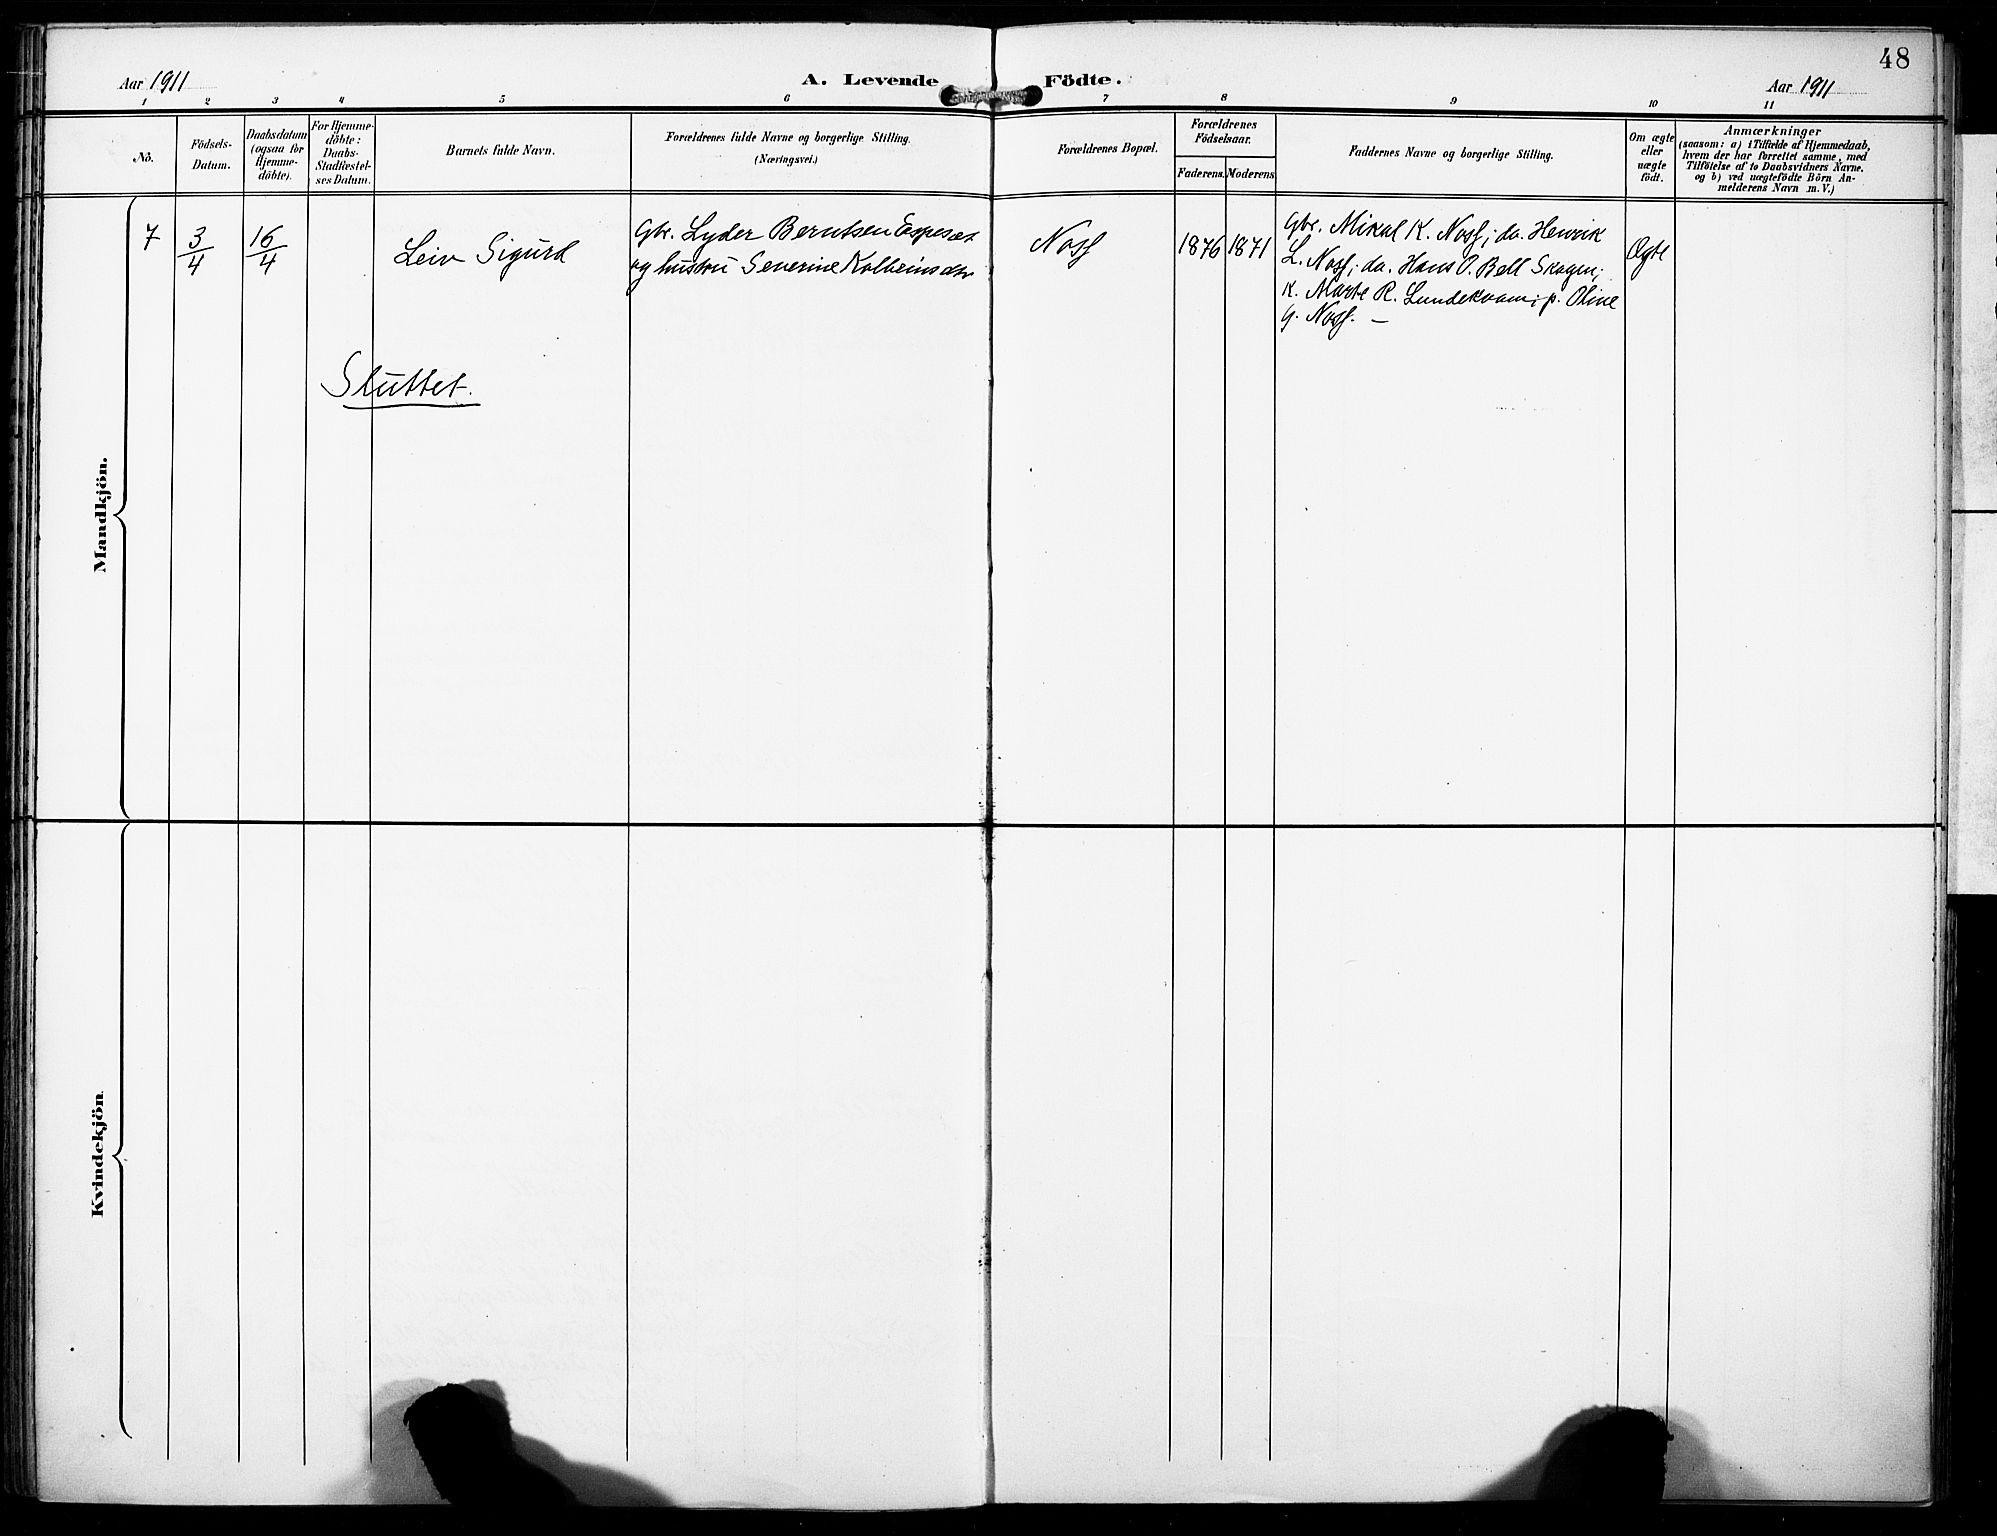 48
Aar 1911
A. Levende Födte.
Aar 1911
1 2 3 4 5 6 7 8 9 10 11
No.
Födsels-
Datum.
Daabsdatum
(ogsaa for
Hjemme-
döbte).
For Hjemme-
döbte:
Daabs-
Stadfæstel-
ses Datum.
Barnets fulde Navn.
Forældrenes fulde Navne og borgerlige Stilling.
(Næringsvei.)
Forældrenes Bopæl.
Forældrenes
Födselsaar.
Faderens. Moderens.
Faddernes Navne og borgerlige Stilling.
Om ægte
eller
uægte
födt.
Anmærkninger
(saasom: a) i Tilfælde af Hjemmedaab,
hvem der har forrettet samme, med
Tilföielse af to Daabsvidners Navne,
og b) ved uægtefödte Börn An-
melderens Navn m. V.)
Mandkjön.
7
3/4
16/4
Leiv Sigurd
Gbr. Lyder Berntsen Espeset
og hustru Severine Kolbeinsdtr
Noss
1876 1871
Gbr. Mikal K. Noss; do. Henrik
L. Noss; do. Hans O. Bell Skogen;
K. Marte R. Lundekvam; p. Oline
G. Noss. —
Ægte
Sluttet.
Kvindekjön